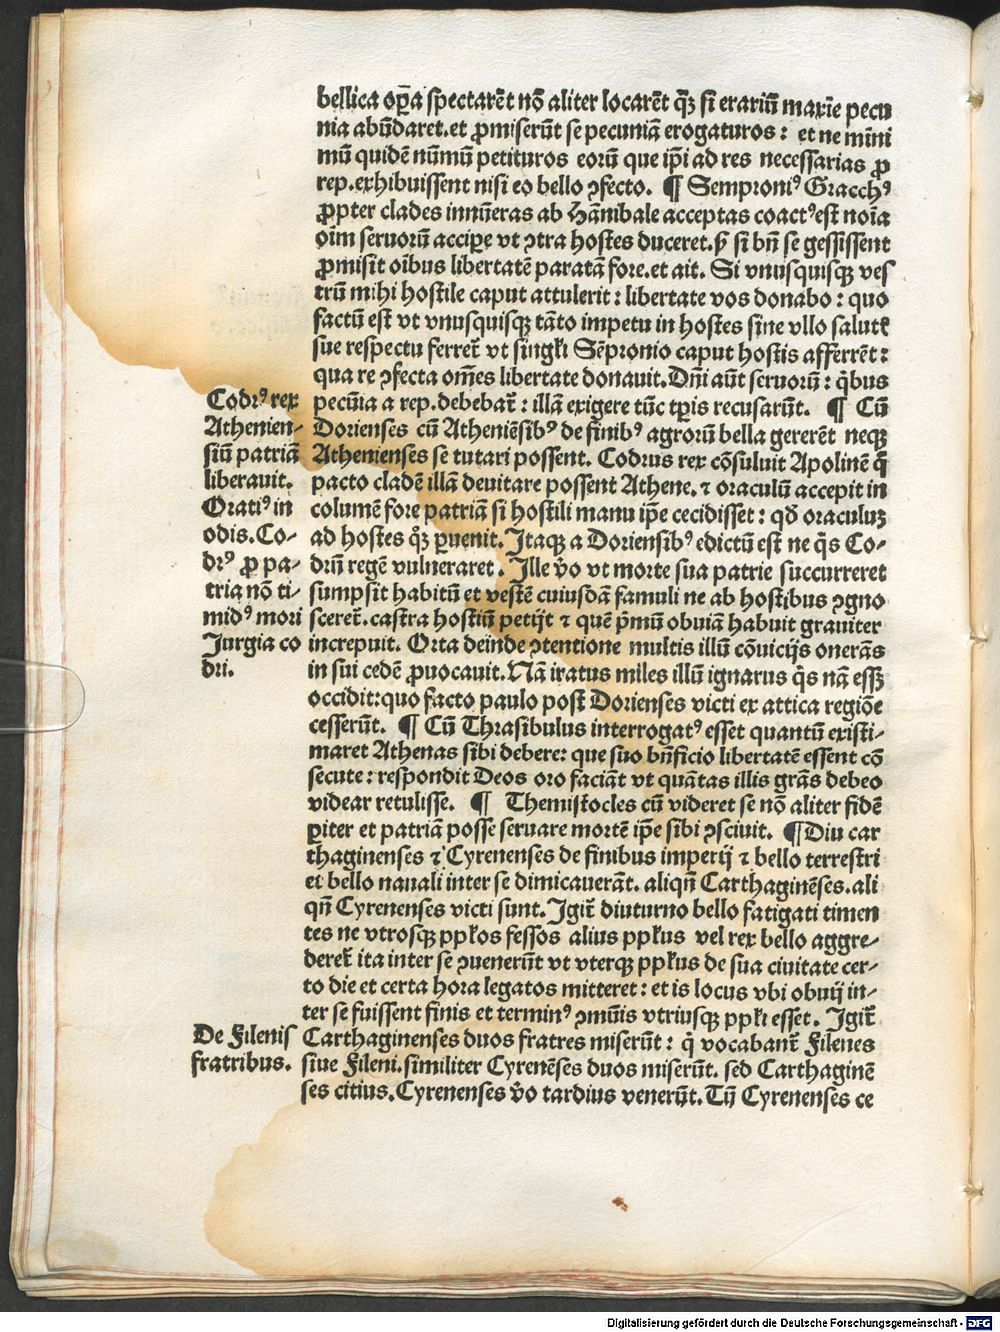 bellica oꝑa spectarēt nō aliter locarēt q̄ꝫ si erariū maxīe pecu
nia abūdaret.et ꝓmiserūt se pecuniā erogaturos: et ne mīni
mū quidē nūmū petituros eorū que ip̄i ad res necessarias ꝓ
rep.exhibuissent nisi eo bello ꝯfecto. ¶ Semproniꝰ Gracchꝰ
ꝓpter clades innūeras ab Hānibale acceptas coactꝰ est noīa
oīm seruorū acciꝑe vt ꝯtra hostes duceret.ꝙ si bn̄ se gessissent
ꝓmisit oībus libertatē paratā fore.et ait. Si vnusquisqꝫ ves
trū mihi hostile caput attulerit: libertate vos donabo: quo
factū est vt vnusquisqꝫ tāto impetu in hostes sine vllo salutē
sue respectu ferret̄ vt singłi Sēpronio caput hostis afferrēt:
qua re ꝯfecta om̄es libertate donauit.Dn̄i aūt seruorū: q̄bus
pecūia a rep.debebat̄: illā exigere tūc tꝑis recusarūt. ¶ Cū
Dorienses cū Atheniēsibꝰ de finibꝰ agrorū bella gererēt neqꝫ
Athenienses se tutari possent. Codrus rex cōsuluit Apolinē q̄
pacto cladē illā deuitare possent Athene. ⁊ oraculū accepit in
columē fore patriā si hostili manu ip̄e cecidisset: qd̄ oraculuꝫ
ad hostes q̊ꝫ ꝑuenit. Itaqꝫ a Doriensibꝰ edictū est ne q̄s Co-
drū regē vulneraret. Ille v̄o vt morte sua patrie succurreret
sumpsit habitū et vestē cuiusdā famuli ne ab hostibus ꝯgno
sceret̄.castra hostiū petijt ⁊ quē p̄mū obuiā habuit grauiter
increpuit. Orta deinde ꝯtentione multis illū cōuicijs onerās
in sui cedē ꝓuocauit.Nā iratus miles illū ignarus q̄s nā essꝫ
occidit:quo facto paulo post Dorienses victi ex attica regiōe
cesserūt. ¶ Cū Thrasibulus interrogatꝰ esset quantū existi-
maret Athenas sibi debere: que suo bn̄ficio libertatē essent cō
secute: respondit Deos oro faciāt vt quātas illis grās debeo
videar retulisse. ¶ Themistocles cū videret se nō aliter fidē
ꝑiter et patriā posse seruare mortē ip̄e sibi ꝯsciuit. ¶ Diu car
thaginenses ⁊ Cyrenenses de finibus imperij ⁊ bello terrestri
et bello nauali inter se dimicauerāt. aliqn̄ Carthaginēses.ali
qn̄ Cyrenenses victi sunt. Igit̄ diuturno bello fatigati timen
tes ne vtrosqꝫ ppłos fessos alius ppłus vel rex bello aggre-
deret̄ ita inter se ꝯuenerūt vt vterqꝫ ppłus de sua ciuitate cer-
to die et certa hora legatos mitteret: et is locus vbi obuij in-
ter se fuissent finis et terminꝰ ꝯmūis vtriusqꝫ ppłi esset. Igit̄
Carthaginenses duos fratres miserūt: q̄ vocabant̄ Filenes
siue Fileni.similiter Cyrenēses duos miserūt. sed Carthaginē
ses citius.Cyrenenses v̄o tardius venerūt. Tū Cyrenenses ce
Codrꝰ rex
Athenien-
siū patriā
liberauit.
Oratiꝰ in
odis. Co-
drꝰ ꝓ pa-
tria nō ti-
midꝰ mori
Iurgia co
dri.
De Filenis
fratribus.
Digitalisierung gefördert durch die Deutsche Forschungsgemeinschaft - DFG